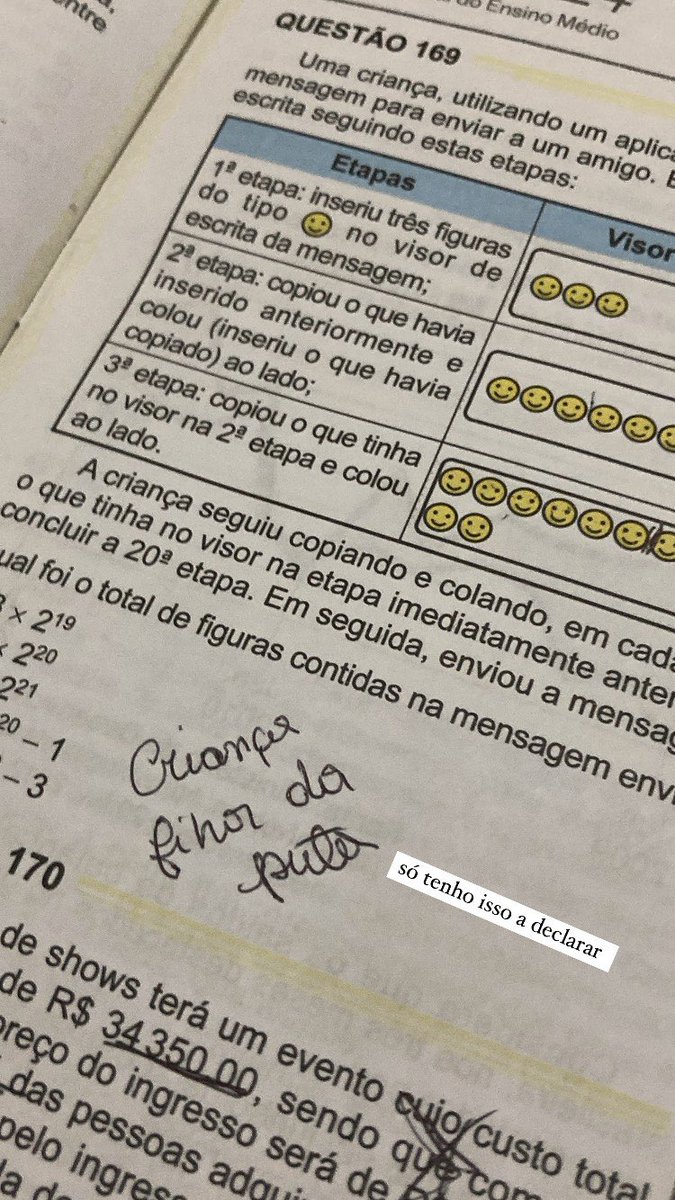 entre
do Ensino Médio
QUESTÃO 169
Uma criança, utilizando um
mensagem para enviar a um amigo.
escrita seguindo estas etapas:
Etapas
Visor
1ª etapa: inseriu três figuras
do tipo 🙂 no visor de
escrita da mensagem;
2ª etapa: copiou o que havia
inserido anteriormente e
colou (inseriu o que havia
copiado) ao lado;
3ª etapa: copiou o que tinha
no visor na 2ª etapa e colou
ao lado.
A criança seguiu copiando e colando, em cada
o que tinha no visor na etapa imediatamente
concluir a 20ª etapa. Em seguida, enviou a
foi o total de figuras contidas na mensagem
× 2¹⁹
× 2²⁰
2²¹
– 1
– 3
Criança
fihor da
puta
só tenho isso a declarar
170
de shows terá um evento cujo custo total
de R$ 34.350,00, sendo que
preço do ingresso será de
das pessoas
pelo